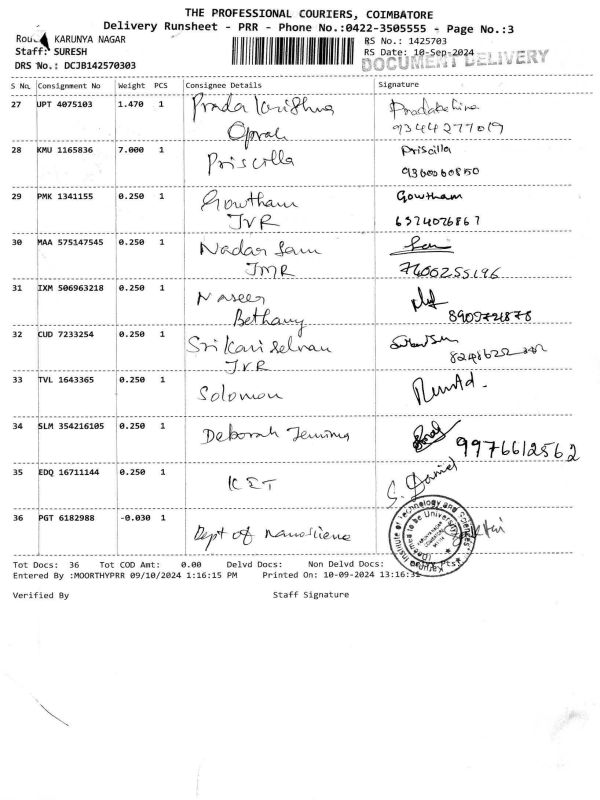 THE PROFESSIONAL COURIERS, COIMBATORE
Delivery Runsheet - PRR - Phone No.:0422-3505555 - Page No.:3
KARUNYA NAGAR
RS No.: 1425703
Staff: SURESH
RS Date: 10-Sep-2024
DOCUMENT DELIVERY
DRS No.: DCJB142570303
S No. Consignment No Weight PCS Consignee Details Signature
27 UPT 4075103 1.470 1
9344277019
28 KMU 1165836 7.000 1 Priscilla Priscilla
9360060850
29 PMK 1341155 0.250 1 Gowtham Gowtham
JVR 6374076867
30 MAA 575147545 0.250 1 Nadar Sam
JMR 7400255196
31 IXM 506963218 0.250 1 Naseer
Bethany
32 CUD 7233254 0.250 1 Sri Kari selvan
JVR
33 TVL 1643365 0.250 1 Solomon
34 SLM 354216105 0.250 1 Deborah Jemima
9976612562
35 EDQ 16711144 0.250 1 KET S. Daniel
36 PGT 6182988 -0.030 1 Dept of Nanosciene
Institute of Technology and Sciences
(Deemed to be University)
Tot Docs: 36 Tot COD Amt: 0.00 Delvd Docs: Non Delvd Docs:
Entered By :MOORTHYPRR 09/10/2024 1:16:15 PM Printed On: 10-09-2024 13:16:31
Verified By Staff Signature